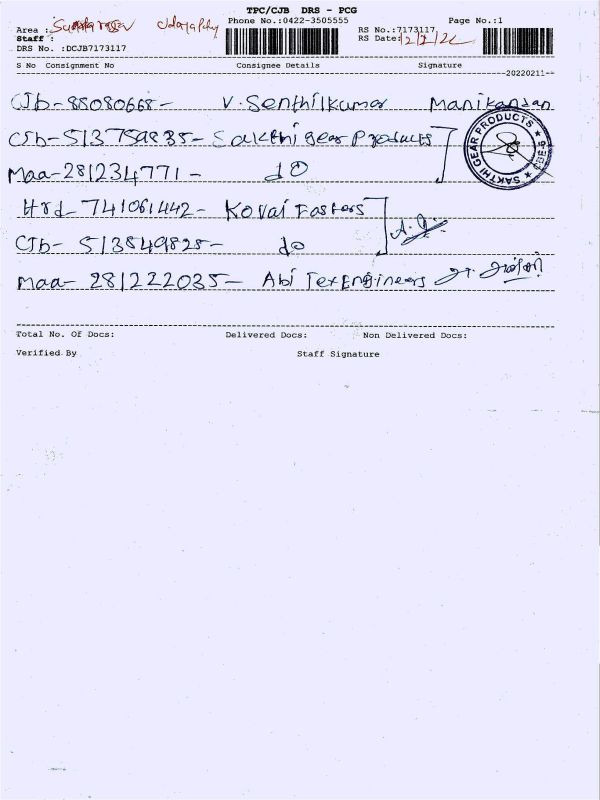 TPC/CJB DRS - PCG
Phone No.:0422-3505555 Page No.:1
Area :
Staff :
RS No.:7173117
RS Date: 12/2/22
DRS No. :DCJB7173117
S No Consignment No Consignee Details Signature
20220211
CJb-88080668- V.Senthilkumar Manikandan
CJb-513759835- Sakthi Gear Products
Maa-281234771- do
SAKTHI GEAR PRODUCTS
Hrd-741061442- Kovai Fasters
CJb- 513849825- do
Maa- 281222035- Abi Tex Engineers
Total No. Of Docs: Delivered Docs: Non Delivered Docs:
Verified By Staff Signature